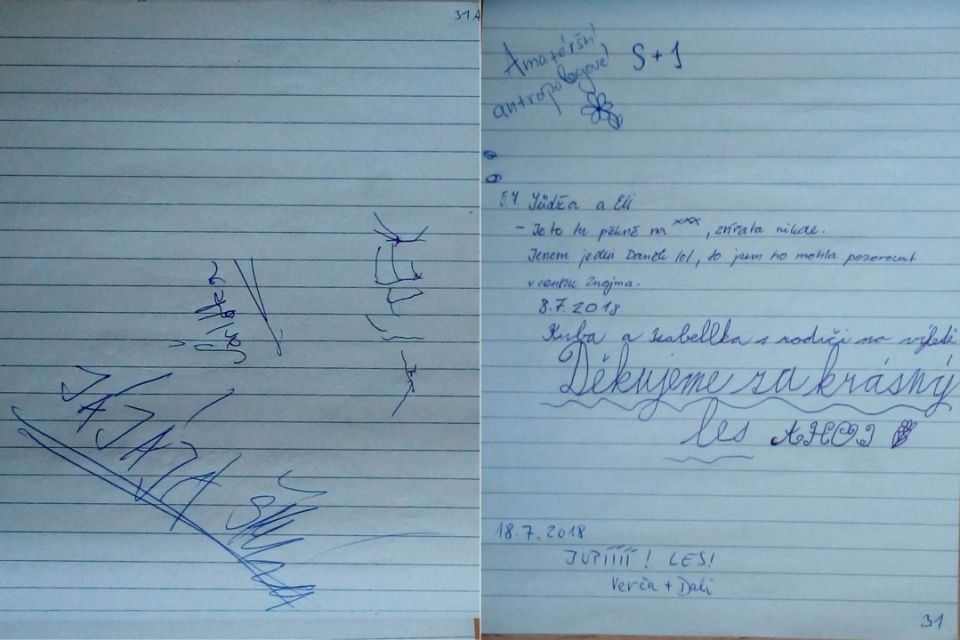 31A
Amatérští
antropologové
S + J
5.7. Jůdža a Eli
- Je to tu pěkné na xxx, zvířata nikde.
Jenom jeden Daněk lol, to jsem ho mohla pozorovat
v centru Znojma.
8.7.2018
Kuba a Izabellka s rodiči na výletě
Děkujeme za krásný
les AHOJ
18.7.2018
JUPÍÍÍÍÍ! LES!
Verča + Dali
31